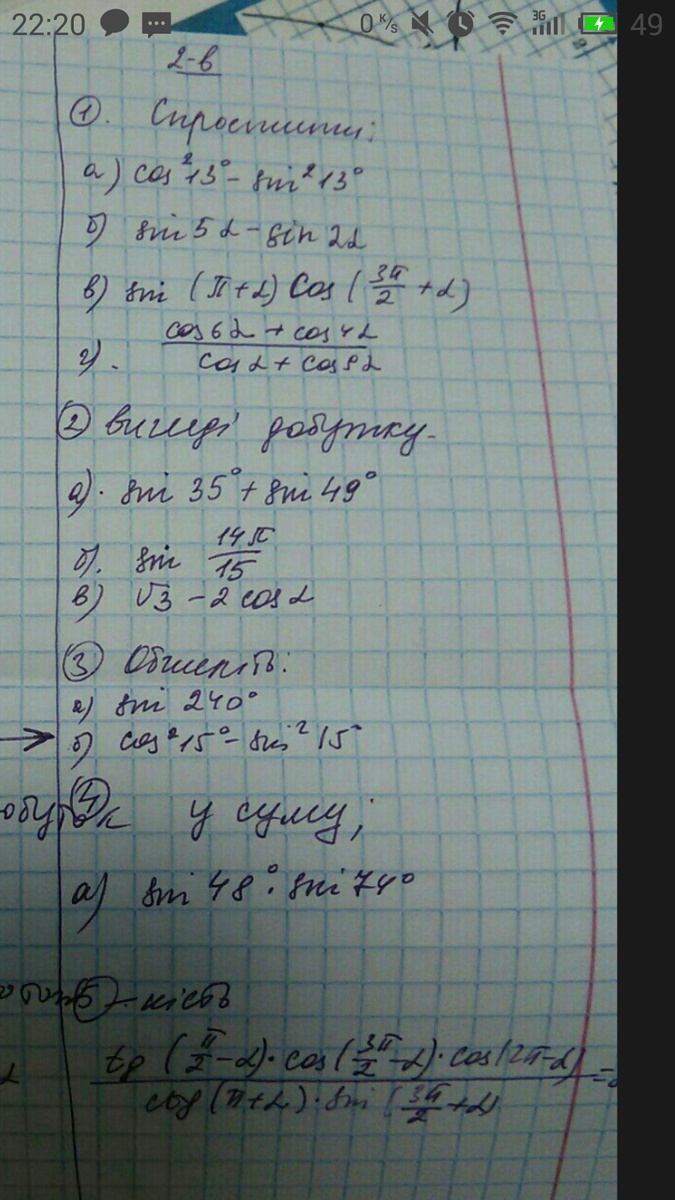 22:20 0 K/s 3G 49
2-в
①. Спростити:
а) cos²13° - sin²13°
б) sin 5α - sin 2α
в) sin (π+α) cos (3π/2 + α)
г). cos 6α + cos 4α / cos α + cos 9α
② вигляді добутку.
а). sin 35° + sin 49°
б). sin 14π/15
в) √3 - 2 cos α
③ Обчисліть:
а) sin 240°
→ б) cos²15° - sin²15
④ у суму;
а) sin 48° · sin 74°
⑤ -ність
tg (π/2 - α) · cos (3π/2 - α) · cos (2π - α) / ctg (π + α) · sin (3π/2 + α) =